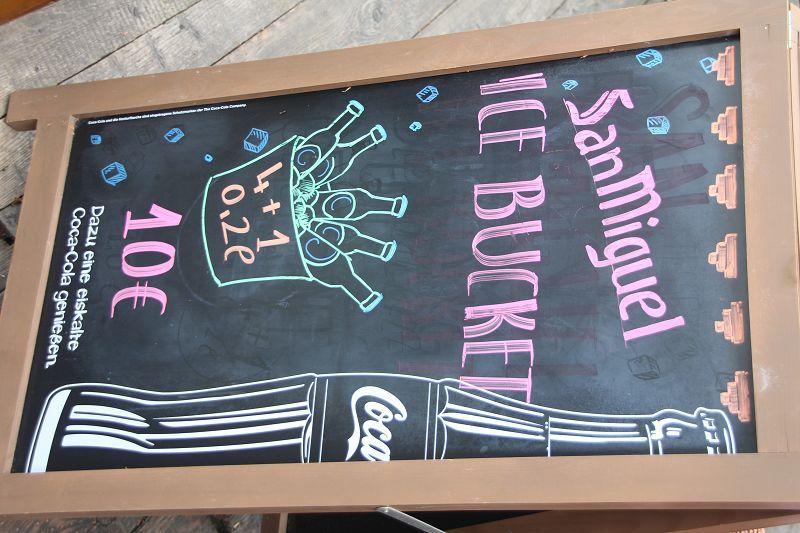 San Miguel
ICE BUCKET
4+1
0,2l
10€
Dazu eine eiskalte
Coca-Cola genießen.
Coca
Coca-Cola und die Konturflasche sind eingetragene Schutzmarken der The Coca-Cola Company.